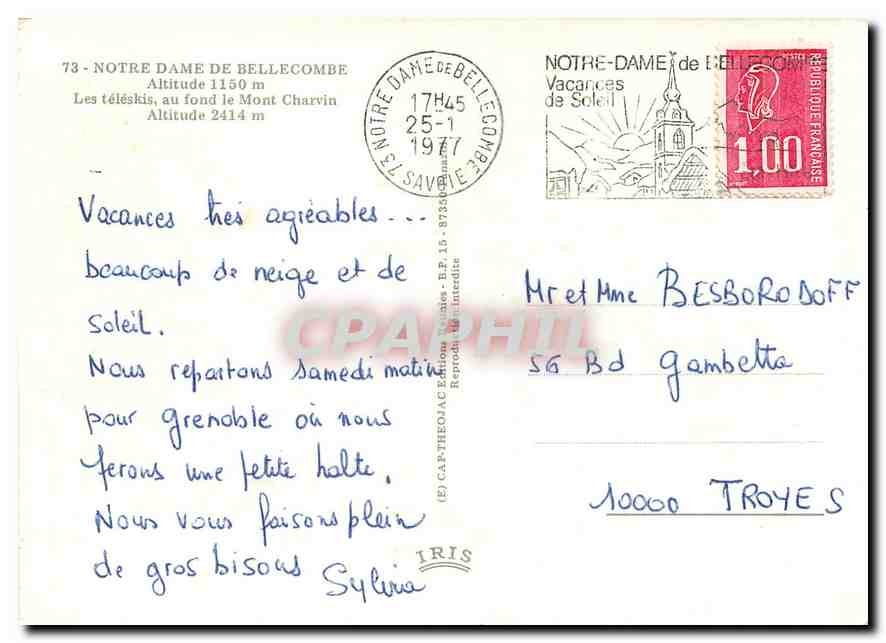 73 - NOTRE DAME DE BELLECOMBE
Altitude 1150 m
Les téléskis, au fond le Mont Charvin
Altitude 2414 m
73 NOTRE DAME DE BELLECOMBE
17H45
25-1
1977
SAVOIE
NOTRE-DAME de BELLECOMBE
Vacances
de Soleil
POSTES
REPUBLIQUE FRANÇAISE
1,00
Vacances très agréables ...
beaucoup de neige et de
soleil.
Nous repartons samedi matin
pour Grenoble où nous
ferons une petite halte.
Nous vous faisons plein
de gros bisous
Sylvia
(E) CAP-THEOJAC Editions Réunies - B.P. 15 - 87350
Reproduction Interdite
IRIS
CPAPHIL
Mr et Mme BESBORODOFF
56 Bd Gambetta
10000 TROYES